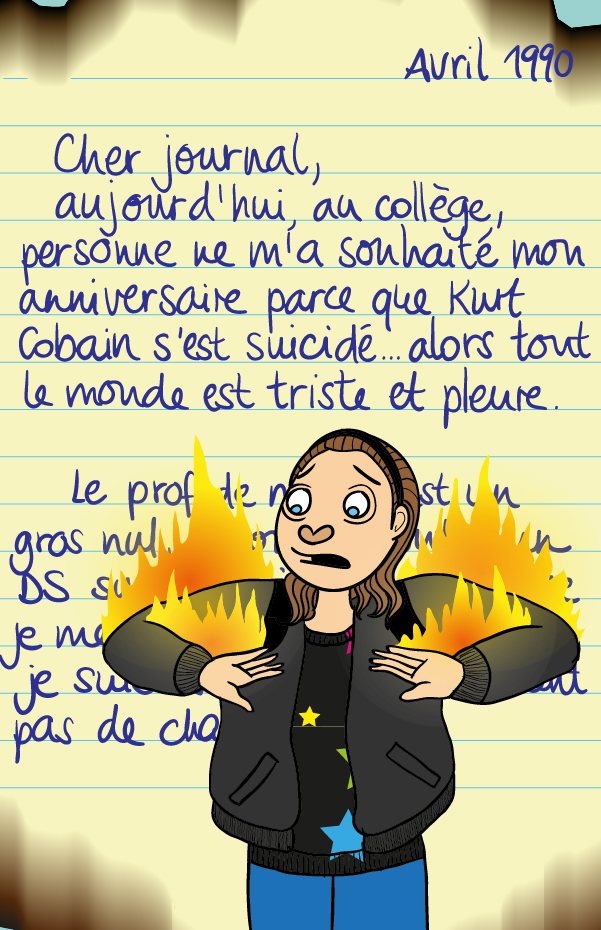 Avril 1990
Cher journal,
aujourd'hui, au collège,
personne ne m'a souhaité mon
anniversaire parce que Kurt
Cobain s'est suicidé...alors tout
le monde est triste et pleure.
Le prof de un
gros nul un
DS
je
je
pas de